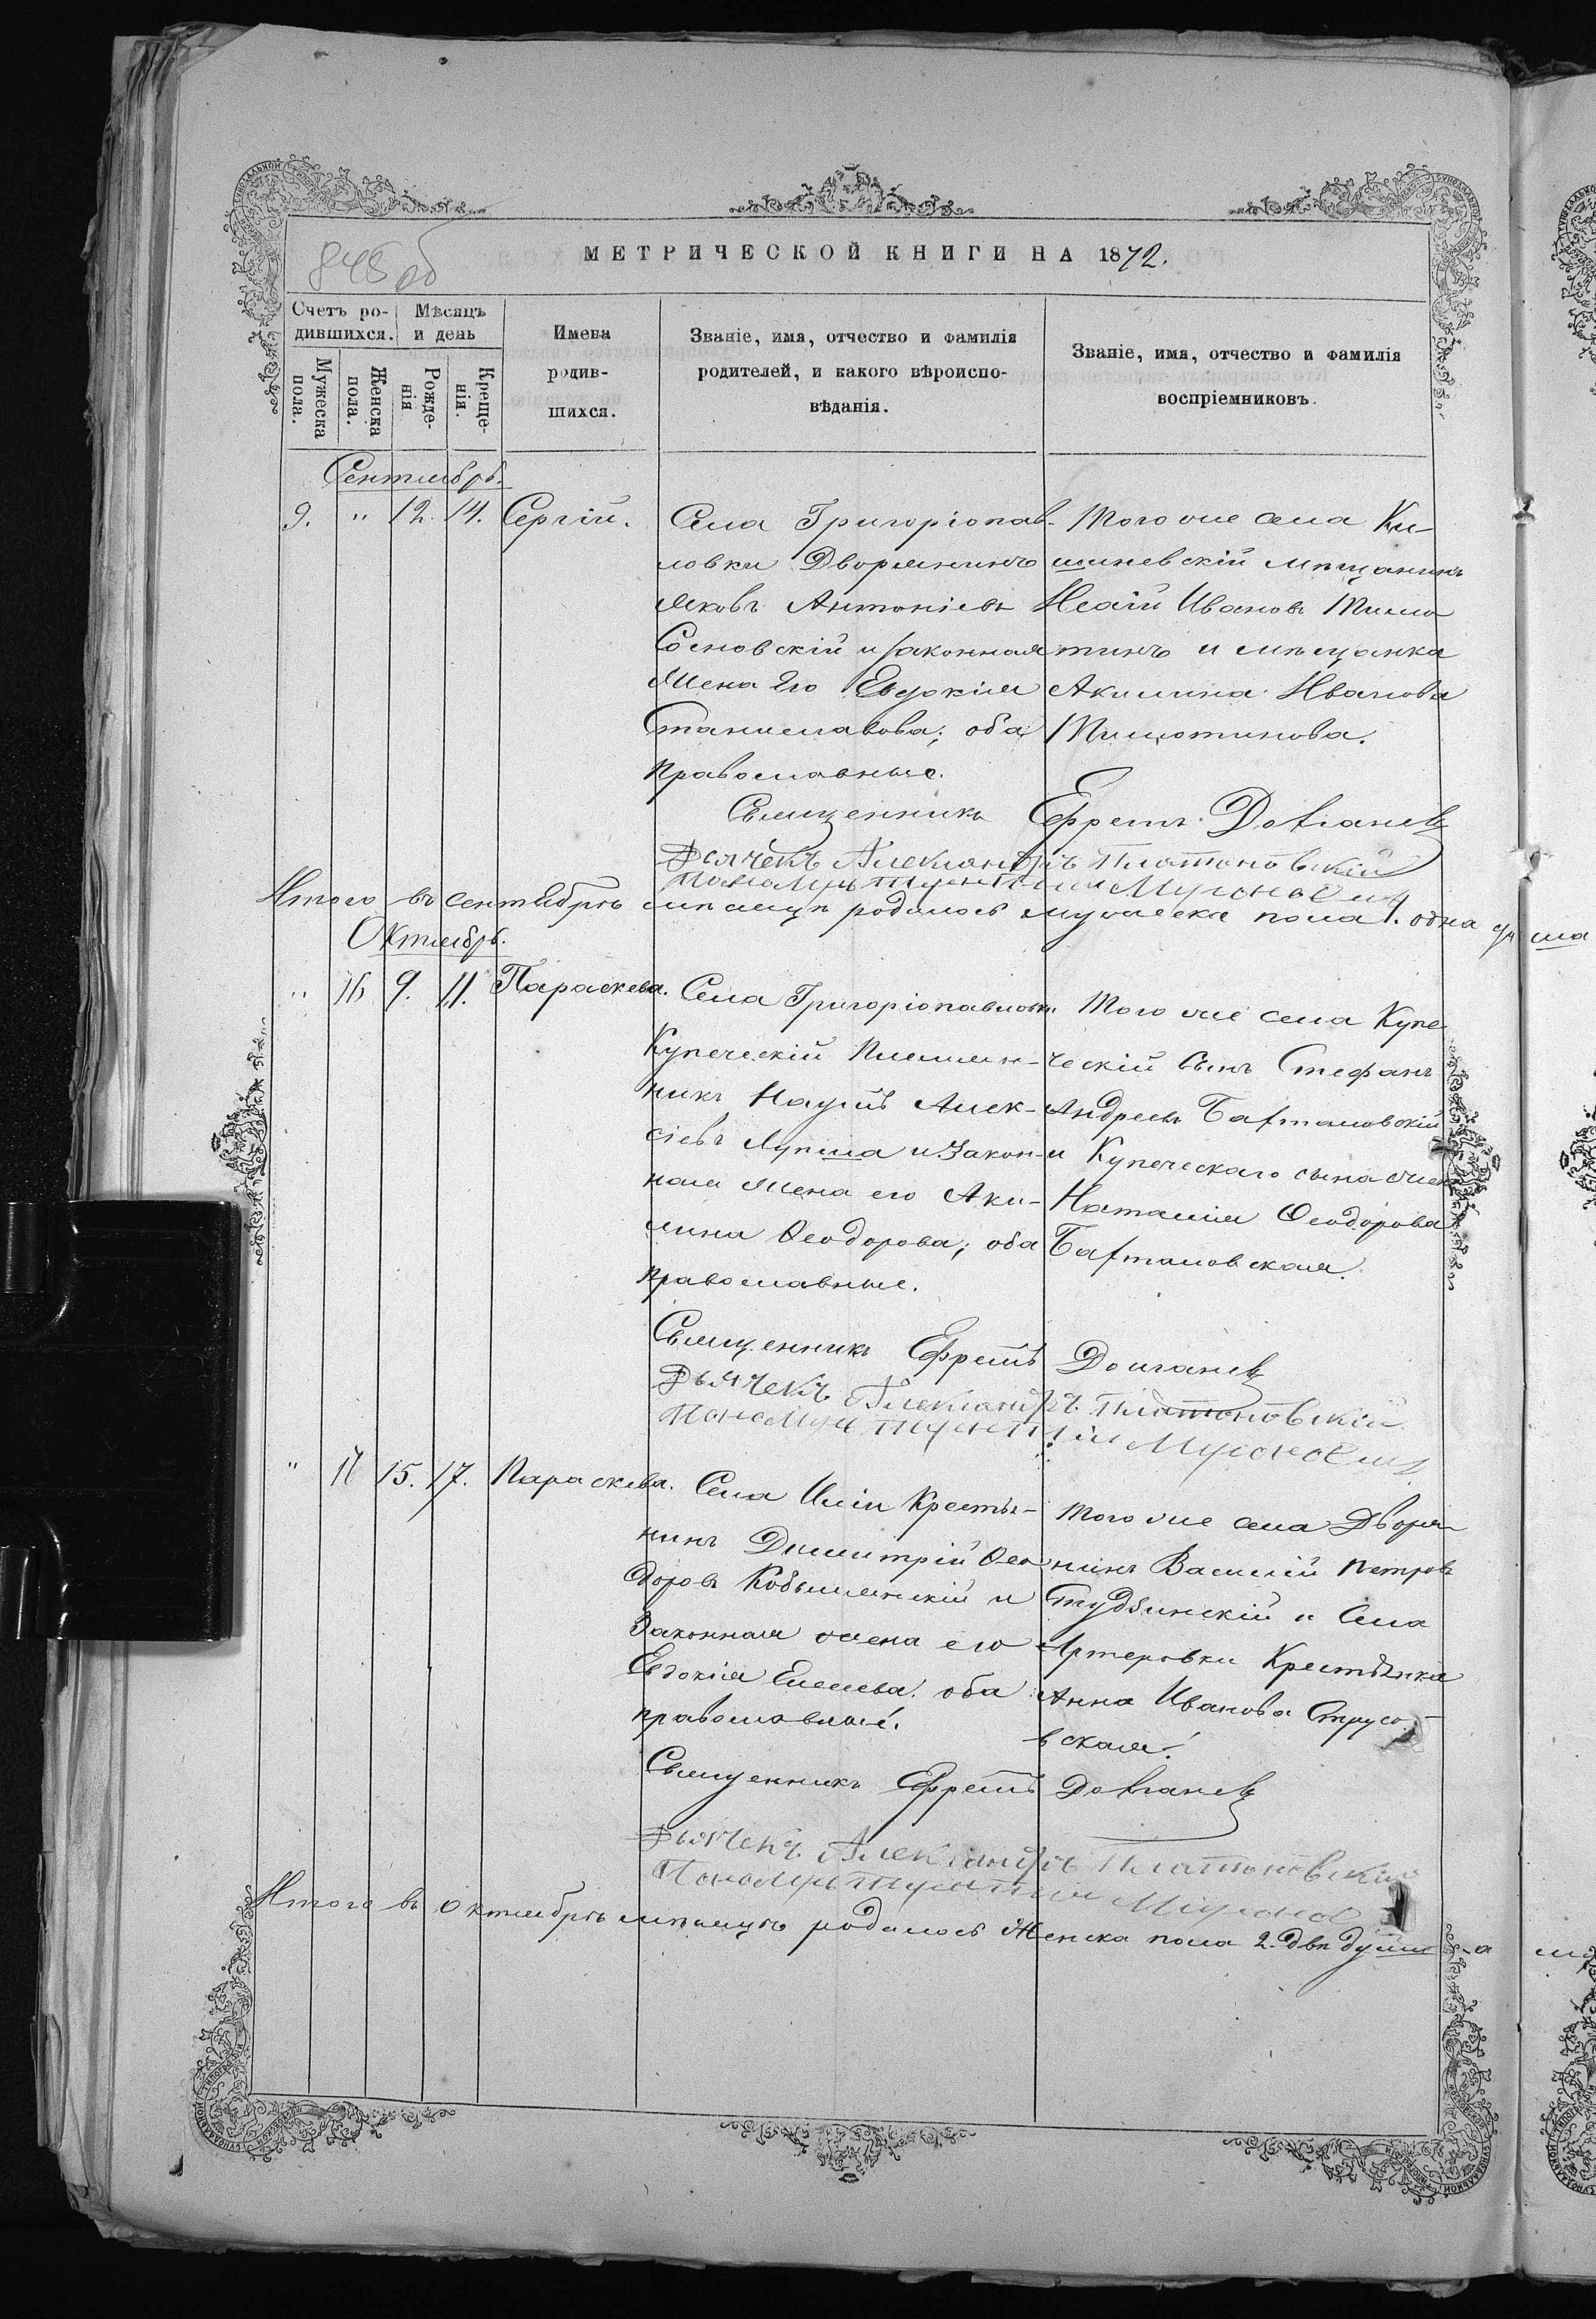 МЕТРИЧЕСКОЙ КНИГИ НА 1872.
Счетъ ро-
дившихся.
Мѣсяцъ
и день
Мужеска
пола.
Женска
пола.
Рожде-
нія
Креще-
нія.
Имена
родив-
шихся.
Званіе, имя, отчество и фамилія
родителей, и какого вѣроиспо-
вѣданія.
Званіе, имя, отчество и фамилія
воспріемниковъ.
Сентябрь.
9. " 12. 14. Сергій.
Села Григоріопав-
ловки Дворянинъ
Яковъ Антоніевъ
Сосновскій и законная
Жена Его Евдокія
Станиславова; оба
православные.
Того же села Ки-
шиневскій мѣщанинъ
Иванов
и мѣщанка
Акилина Иванова
Священникъ Ефремъ
Дьячекъ Александръ Платоновскій
Итого въ сентябрѣ мѣсяцѣ родилось мужеска пола 1. одна душа
Октябрь.
" 16 9. 11. Параскева.
Села Григоріопавловки
Купеческій Племян-
никъ Наумъ Алек-
сіевъ Лупша и Закон-
ная Жена его Аки-
лина Ѳеодорова; оба
православные.
Того же села Купе
ческій Сынъ Стефанъ
Андреевъ Бафталовскій
и Купеческаго сына жена
Наталія Ѳеодорова
Бафталовская.
Священникъ Ефремъ
Дьячекъ Александръ Платоновскій
" 17 15. 17. Параскева.
Села Крестья-
нинъ Димитрій Ѳео
доровъ и
Законная жена его
Евдокія Елисеева. оба
православные.
Того же села Дворя-
нинъ Василій Петровъ
Студзинскій и Села
Артеровки Крестьянка
Анна Иванова Струсо-
вская.
Священникъ Ефремъ
Дьячекъ Александръ Платоновскій
Итого въ октябрѣ мѣсяцѣ родилось Женска пола 2. двѣ души